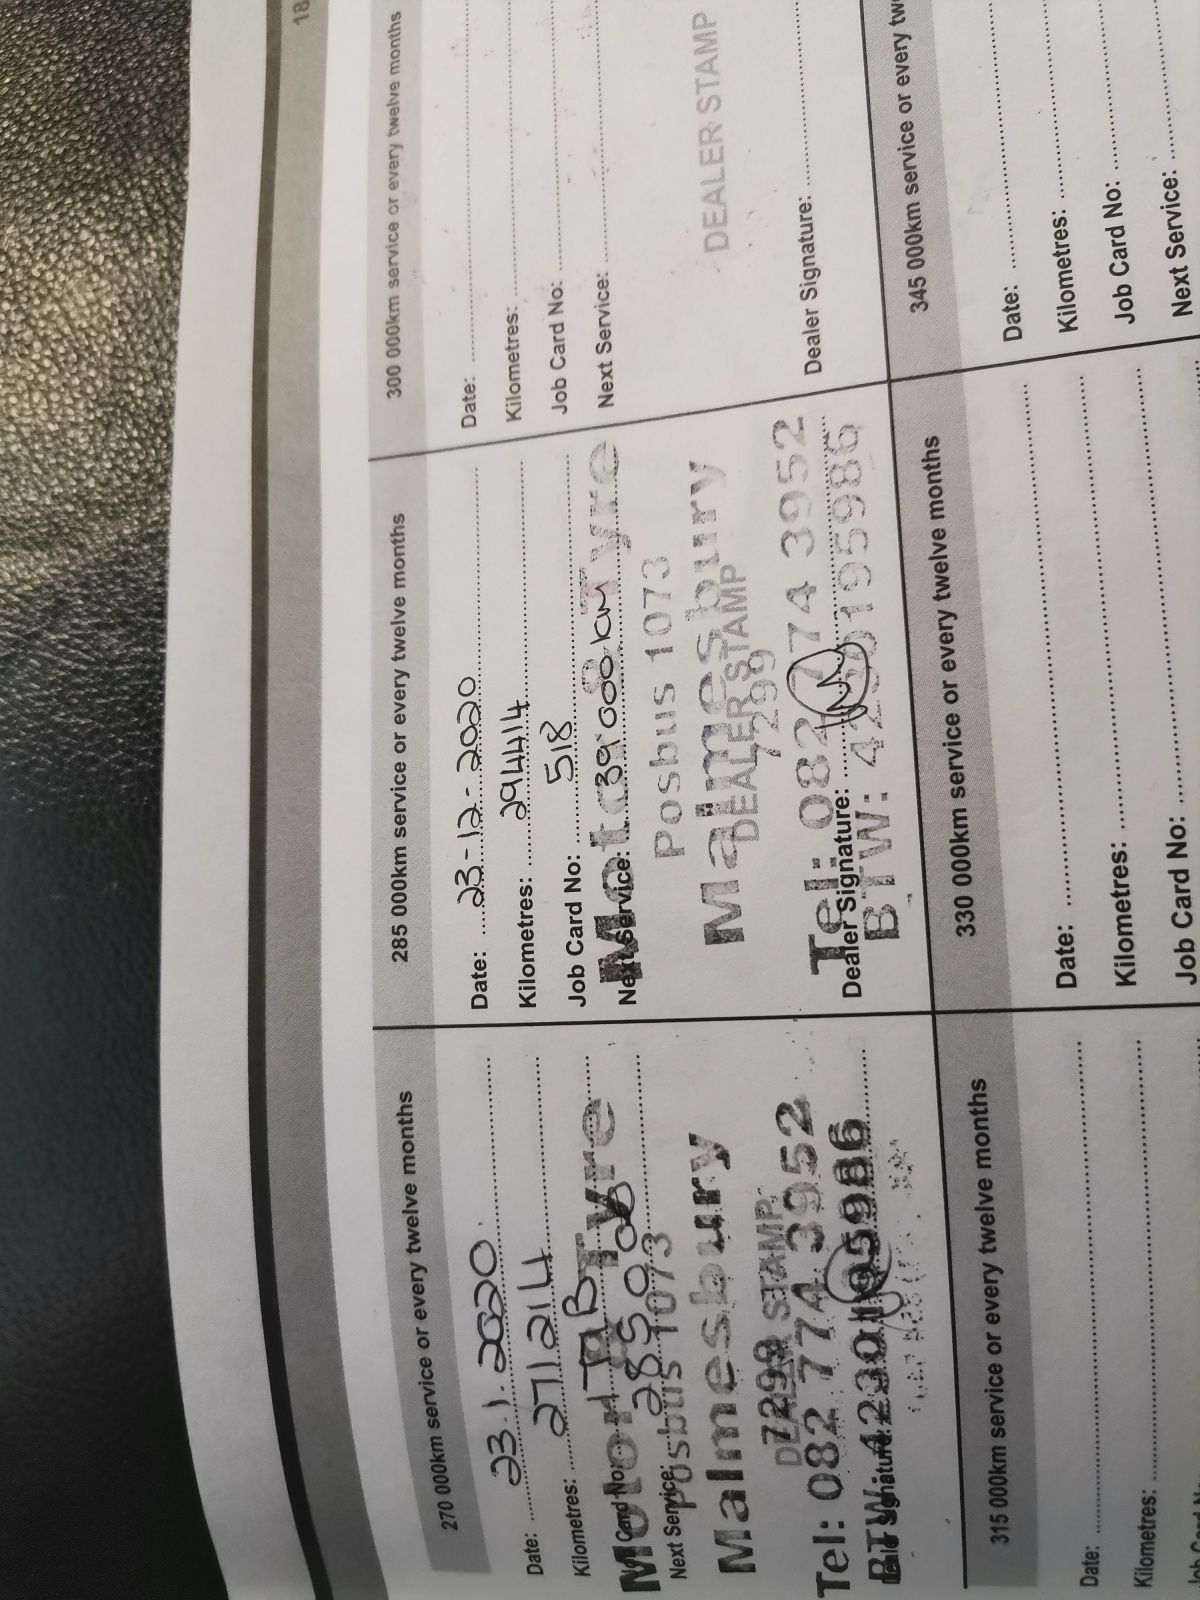 18
270 000km service or every twelve months
Date: 23.1.2020
Kilometres: 271214
Job Card No:
Motor & Tyre
Next Service: 285000
Posbus 1073
Malmesbury
7299
DEALER STAMP
Tel: 082 774 3952
Dealer Signature:
BTW: 4230195986
285 000km service or every twelve months
Date: 23-12-2020
Kilometres: 294414
Job Card No: 518
Motor & Tyre
Next Service: 39 000 km
Posbus 1073
Malmesbury
DEALER STAMP
7299
Tel: 082 774 3952
Dealer Signature:
BTW: 4230195986
300 000km service or every twelve months
Date:
Kilometres:
Job Card No:
Next Service:
DEALER STAMP
Dealer Signature:
315 000km service or every twelve months
Date:
Kilometres:
330 000km service or every twelve months
Date:
Kilometres:
Job Card No:
345 000km service or every
Date:
Kilometres:
Job Card No:
Next Service: